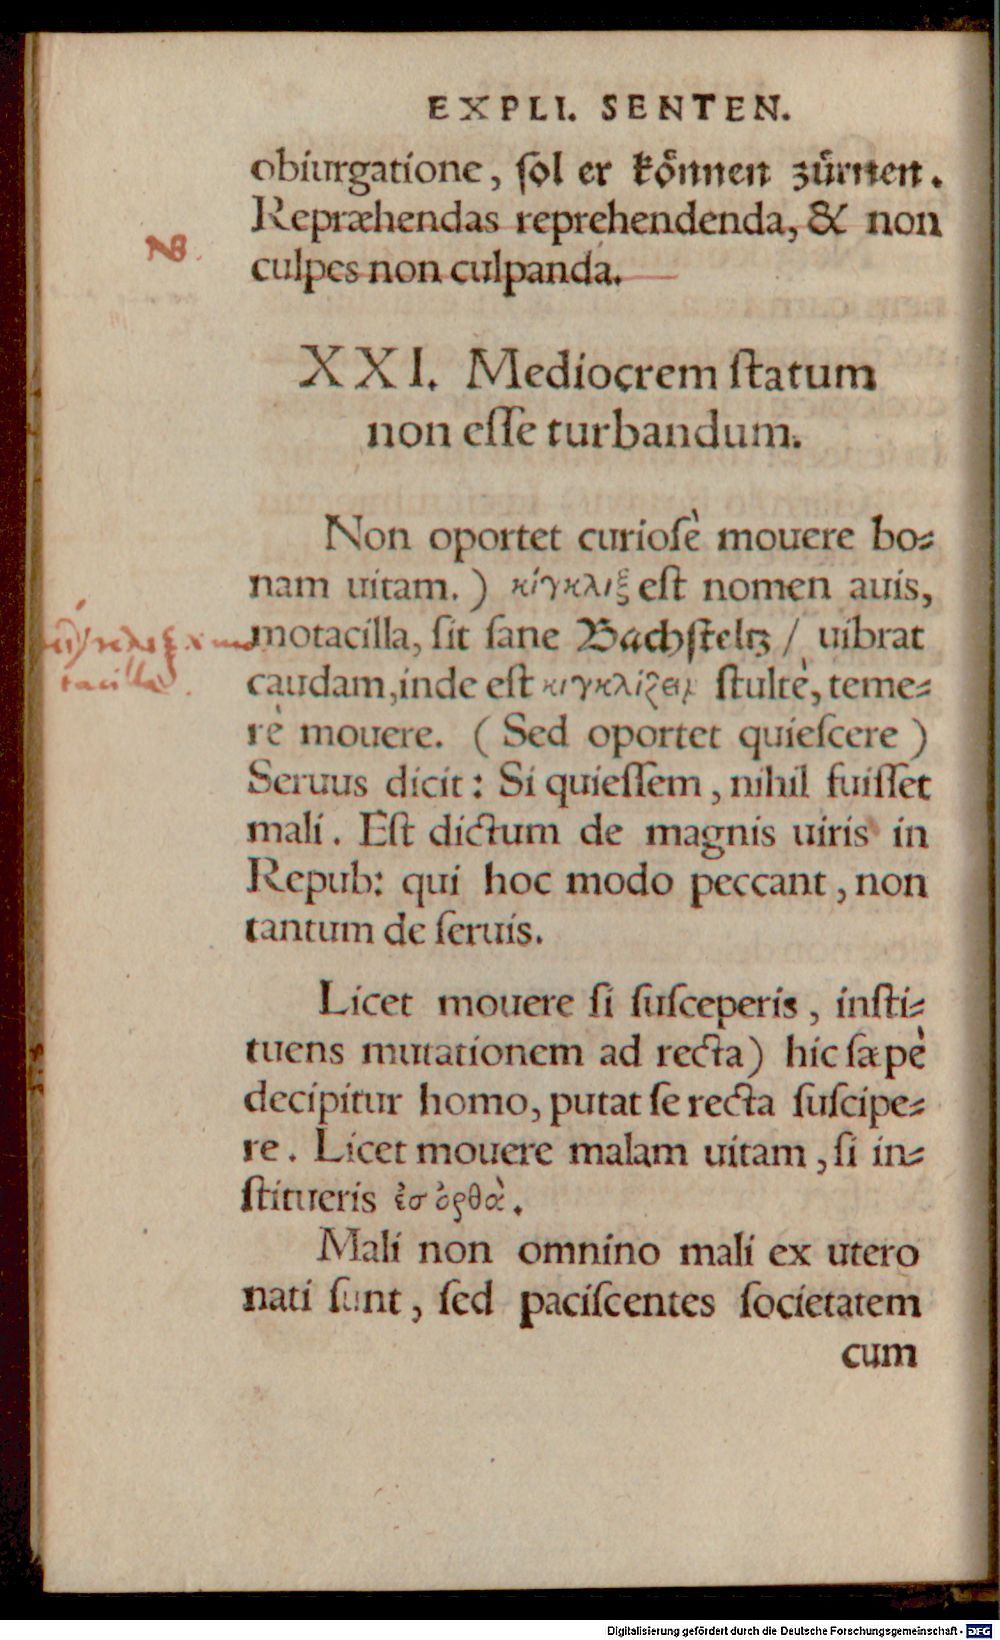 EXPLI. SENTEN.
obiurgatione, ſol er koͤnnen zuͤrnen.
Repræhendas reprehendenda, & non
NB.
culpes non culpanda.
XXI. Mediocrem ſtatum
non eſſe turbandum.
Non oportet curioſè mouere bo⸗
nam uitam.) κίγκλιξ eſt nomen auis,
motacilla, ſit ſane Bachſteltz / uibrat
κίγκλιξ mo
tacilla.
caudam, inde eſt κιγκλίζειν ſtultè, teme⸗
rè mouere. (Sed oportet quieſcere)
Seruus dicit: Si quieſſem, nihil fuiſſet
mali. Eſt dictum de magnis uiris in
Repub: qui hoc modo peccant, non
tantum de ſeruis.
Licet mouere ſi ſuſceperis, inſti⸗
tuens mutationem ad recta) hic ſæpè
decipitur homo, putat ſe recta ſuſcipe⸗
re. Licet mouere malam uitam, ſi in⸗
ſtitueris ἐσ ὀρθὰ.
Mali non omnino mali ex utero
nati ſunt, ſed paciſcentes ſocietatem
cum
Digitalisierung gefördert durch die Deutsche Forschungsgemeinschaft - DFG